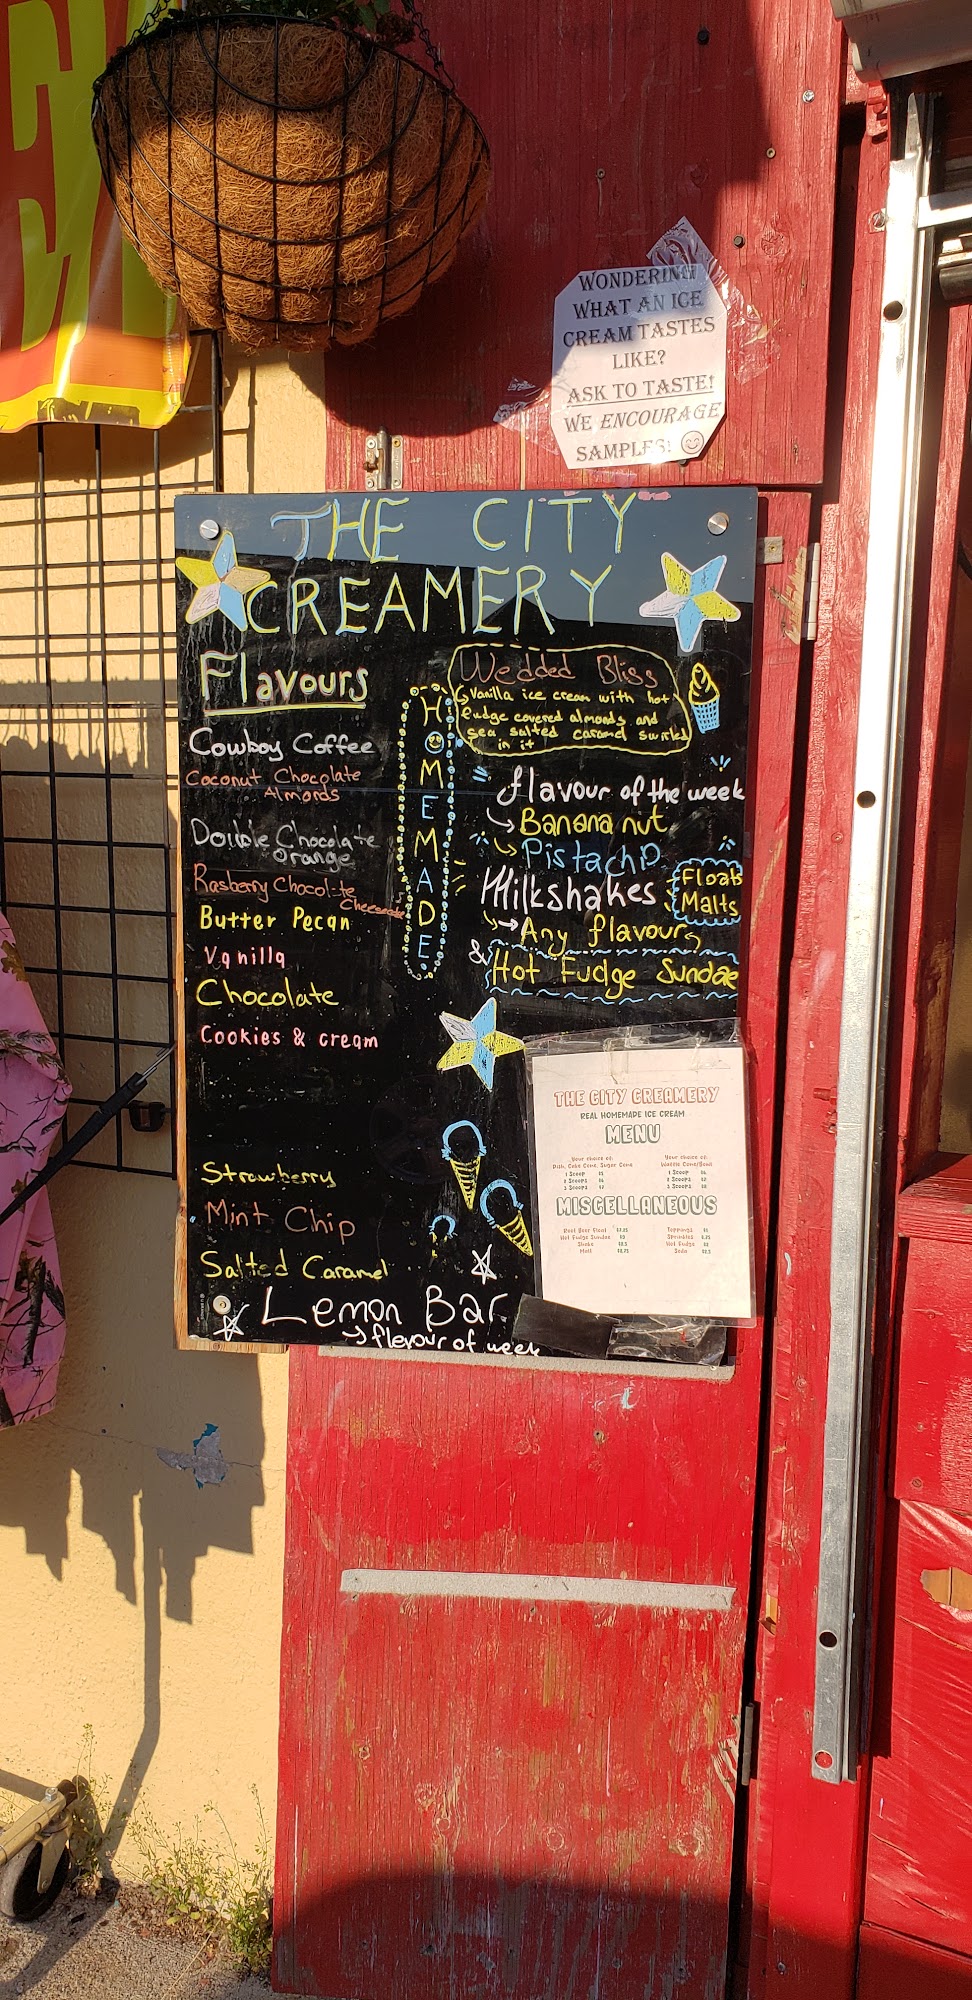 WONDERING
WHAT AN ICE
CREAM TASTES
LIKE?
ASK TO TASTE!
WE ENCOURAGE
SAMPLES!
THE CITY
CREAMERY
Flavours
Cowboy Coffee
Coconut Chocolate
Almonds
Double Chocolate
Orange
Rasberry Chocolate
Cheesecake
Butter Pecan
Vanilla
Chocolate
Cookies & cream
Strawberry
Mint Chip
Salted Caramel
Lemon Bar
flavour of week
HOMEMADE
Wedded Bliss
Vanilla ice cream with hot
fudge covered almonds and
sea salted caramel swirled
in it
flavour of the week
Banana nut
Pistachio
Milkshakes
Floats
Malts
Any flavour
& Hot Fudge Sundae
THE CITY CREAMERY
REAL HOMEMADE ICE CREAM
MENU
Your choice of:
Dish, Cake Cone, Sugar Cone
1 Scoop
2 Scoops
3 Scoops
Your choice of:
Waffle Cone/Bowl
1 Scoop
2 Scoops
3 Scoops
MISCELLANEOUS
Root Beer Float
Hot Fudge Sundae
Shake
Malt
Toppings
Sprinkles
Hot Fudge
Soda